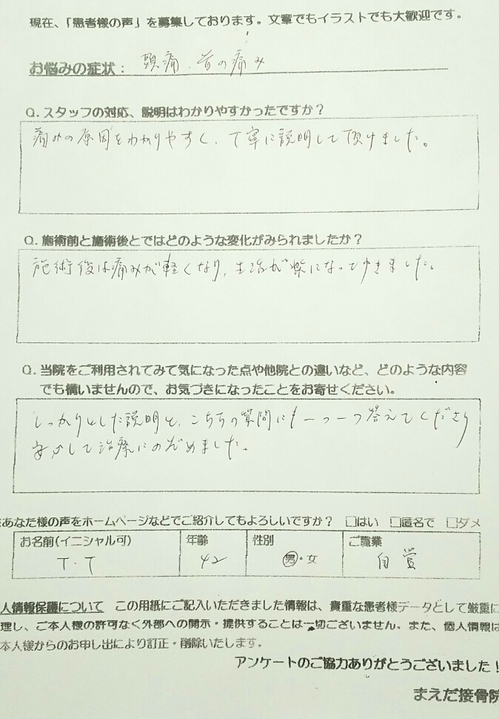 現在、「患者様の声」を募集しております。文章でもイラストでも大歓迎です。
お悩みの症状： 頭痛、首の痛み
Q. スタッフの対応、説明はわかりやすかったですか？
痛みの原因をわかりやすく、丁寧に説明して頂けました。
Q. 施術前と施術後とではどのような変化がみられましたか？
施術後は痛みが軽くなり、生活が楽になってゆきました。
Q. 当院をご利用されてみて気になった点や他院との違いなど、どのような内容
でも構いませんので、お気づきになったことをお寄せください。
しっかりとした説明と、こちらの質問にも一つ一つ答えてくださり
安心して治療にのぞめました。
あなた様の声をホームページなどでご紹介してもよろしいですか？ □はい □匿名で □ダメ
お名前(イニシャル可) 年齢 性別 ご職業
T.T 42 男・女 自営
人情報保護について この用紙にご記入いただきました情報は、貴重な患者様データとして厳重に
理し、ご本人様の許可なく外部への開示・提供することは一切ございません。また、個人情報は
本人様からのお申し出により訂正・削除いたします。
アンケートのご協力ありがとうございました！
まえだ接骨院